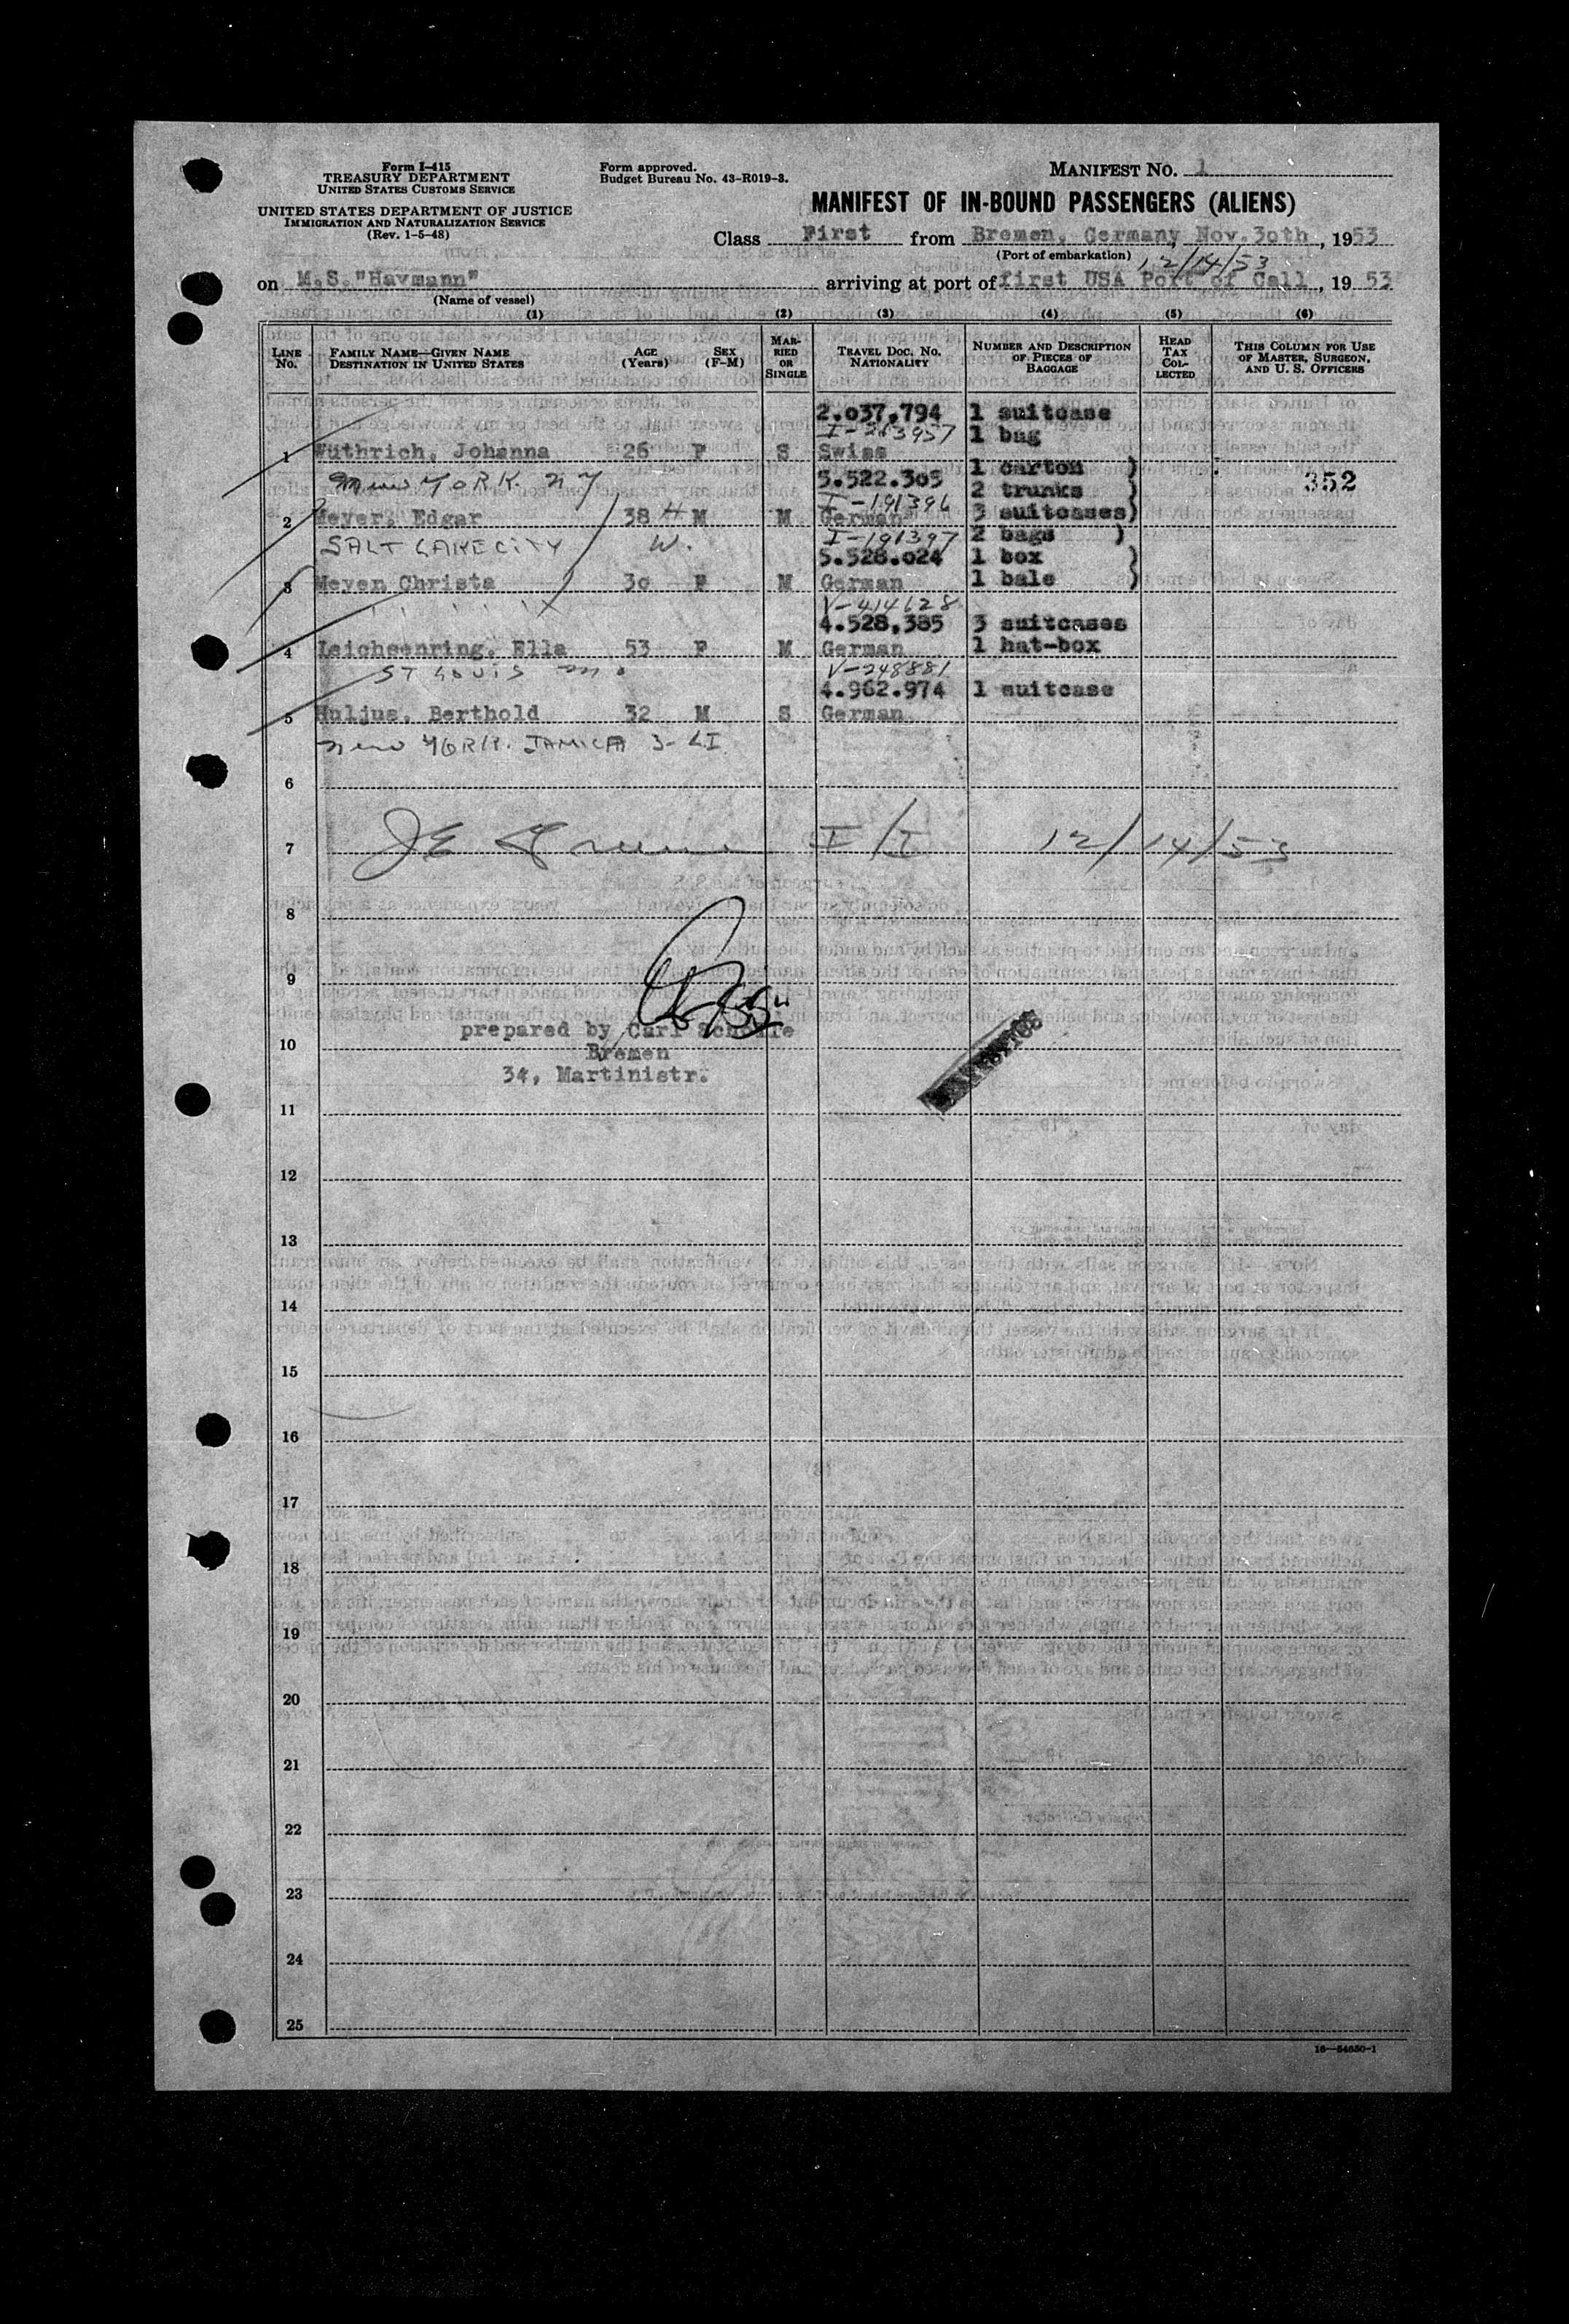 Form I-415
TREASURY DEPARTMENT
UNITED STATES CUSTOMS SERVICE
UNITED STATES DEPARTMENT OF JUSTICE
IMMIGRATION AND NATURALIZATION SERVICE
(Rev. 1-5-48)
Form approved.
Budget Bureau No. 43-R019-3.
MANIFEST NO. 1
MANIFEST OF IN-BOUND PASSENGERS (ALIENS)
Class First from Bremen, Germany, Nov. 30th, 1953
(Port of embarkation) 12/14/53
on M.S."Havmann" arriving at port of first USA Port of Call, 1953
(Name of vessel)
(1) (2) (3) (4) (5) (6)
LINE No. FAMILY NAME—GIVEN NAME DESTINATION IN UNITED STATES AGE (Years) SEX (F-M) MARRIED OR SINGLE TRAVEL DOC. NO. NATIONALITY NUMBER AND DESCRIPTION OF PIECES OF BAGGAGE HEAD TAX COLLECTED THIS COLUMN FOR USE OF MASTER, SURGEON, AND U. S. OFFICERS
2.037.794 1 suitcase
I-263957 1 bag
1 Wüthrich, Johanna 26 F S Swiss
1 carton )
New YORK. N Y 5.522.305 2 trunks ) 352
I-191396 3 suitcases)
2 Meyer, Edgar 38 H M M German
SALT LAKE CITY W. I-191397 2 bags )
5.528.024 1 box )
3 Meyer Christa 30 F M German 1 bale )
V-414628
4.528.385 3 suitcases
4 Leichsenring, Ella 53 F M German 1 hat-box
ST LOUIS Mo V-248881
4.962.974 1 suitcase
5 Huljus, Berthold 32 M S German
New YORK. JAMICA 3-LI
6
7 JE I/I 12/14/53
8
9
prepared by Carl
10 Bremen
34, Martinistr.
11
12
13
14
15
16
17
18
19
20
21
22
23
24
25
16—54650-1